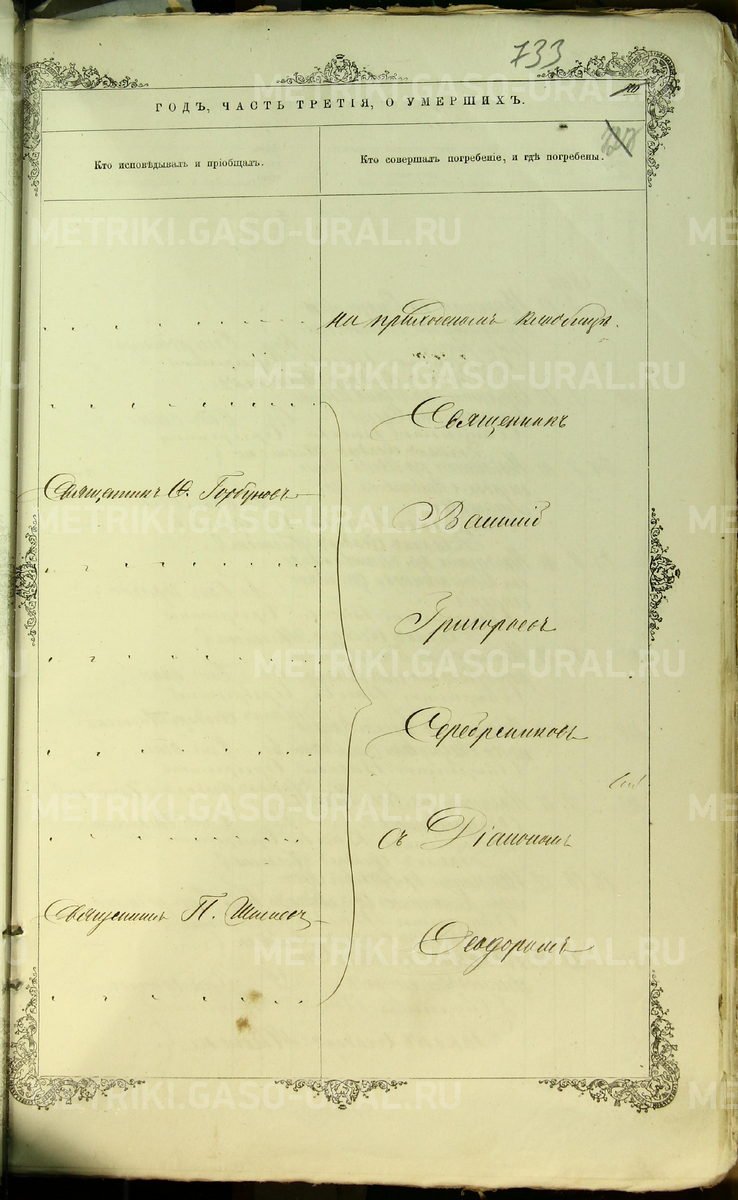 733
ГОДЪ, ЧАСТЬ ТРЕТІЯ, О УМЕРШИХЪ.
Кто исповѣдывалъ и пріобщалъ.
Кто совершалъ погребеніе, и гдѣ погребены.
на приходскомъ кладбищѣ.
Священникъ
Священникъ Ѳ. Горбуновъ
Василій
Григорьевъ
Серебрениковъ
съ Діакономъ
Священникъ П.
Ѳеодоромъ
METRIKI.GASO-URAL.RU